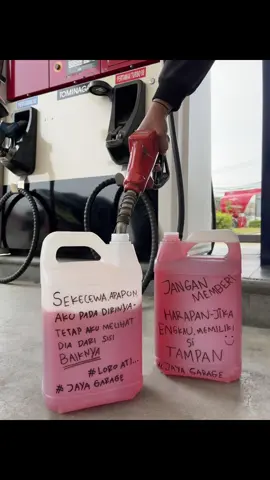 TOMINAGA
PERTAMAX TURBO 98
SEKECEWA APAPUN
AKU PADA DIRINYA.
TETAP AKU MELIHAT
DIA DARI SISI
BAIKNYA
# LORO ATI...
# JAYA GARAGE
JANGAN MEMBERI
HARAPAN JIKA
ENGKAU, MEMILIKI
SI
TAMPAN
# JAYA GARAGE